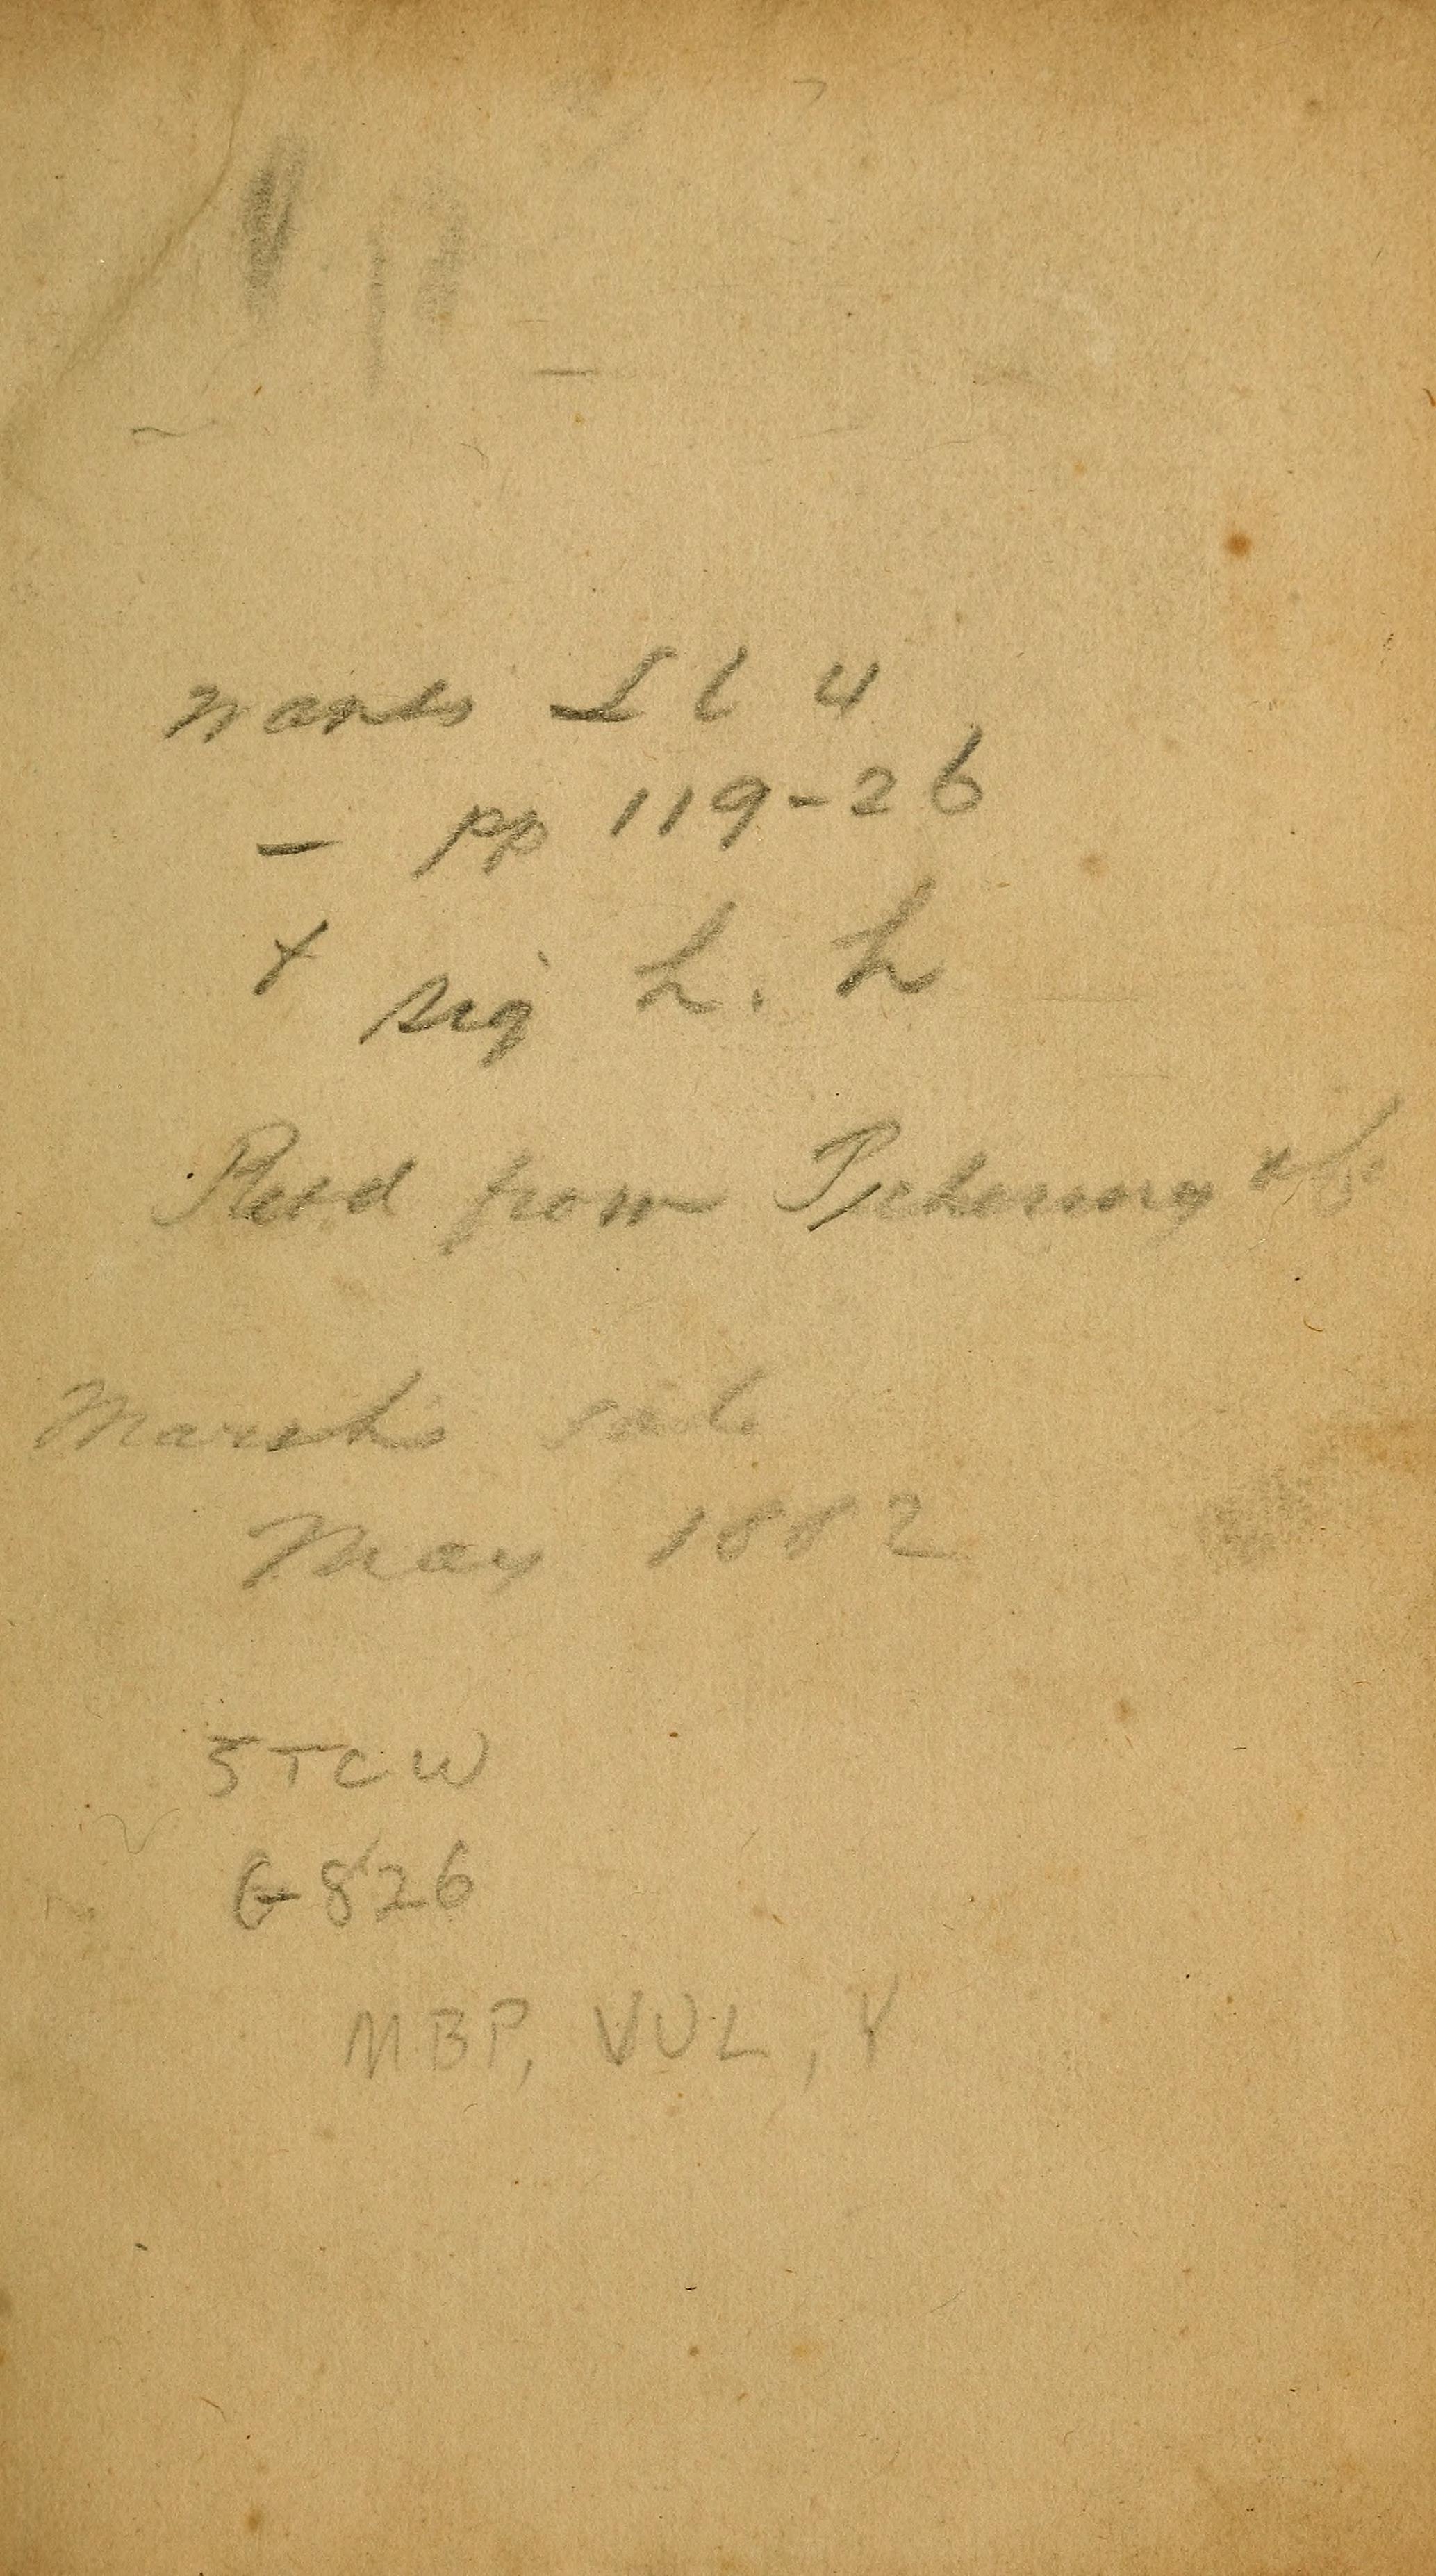 wants Ll 4
– pp 119-26
+ sig L. L
Recd from Pickering & Co
Marsh's sale
May 1882
STC W
G 826
MBP, VUL, Y